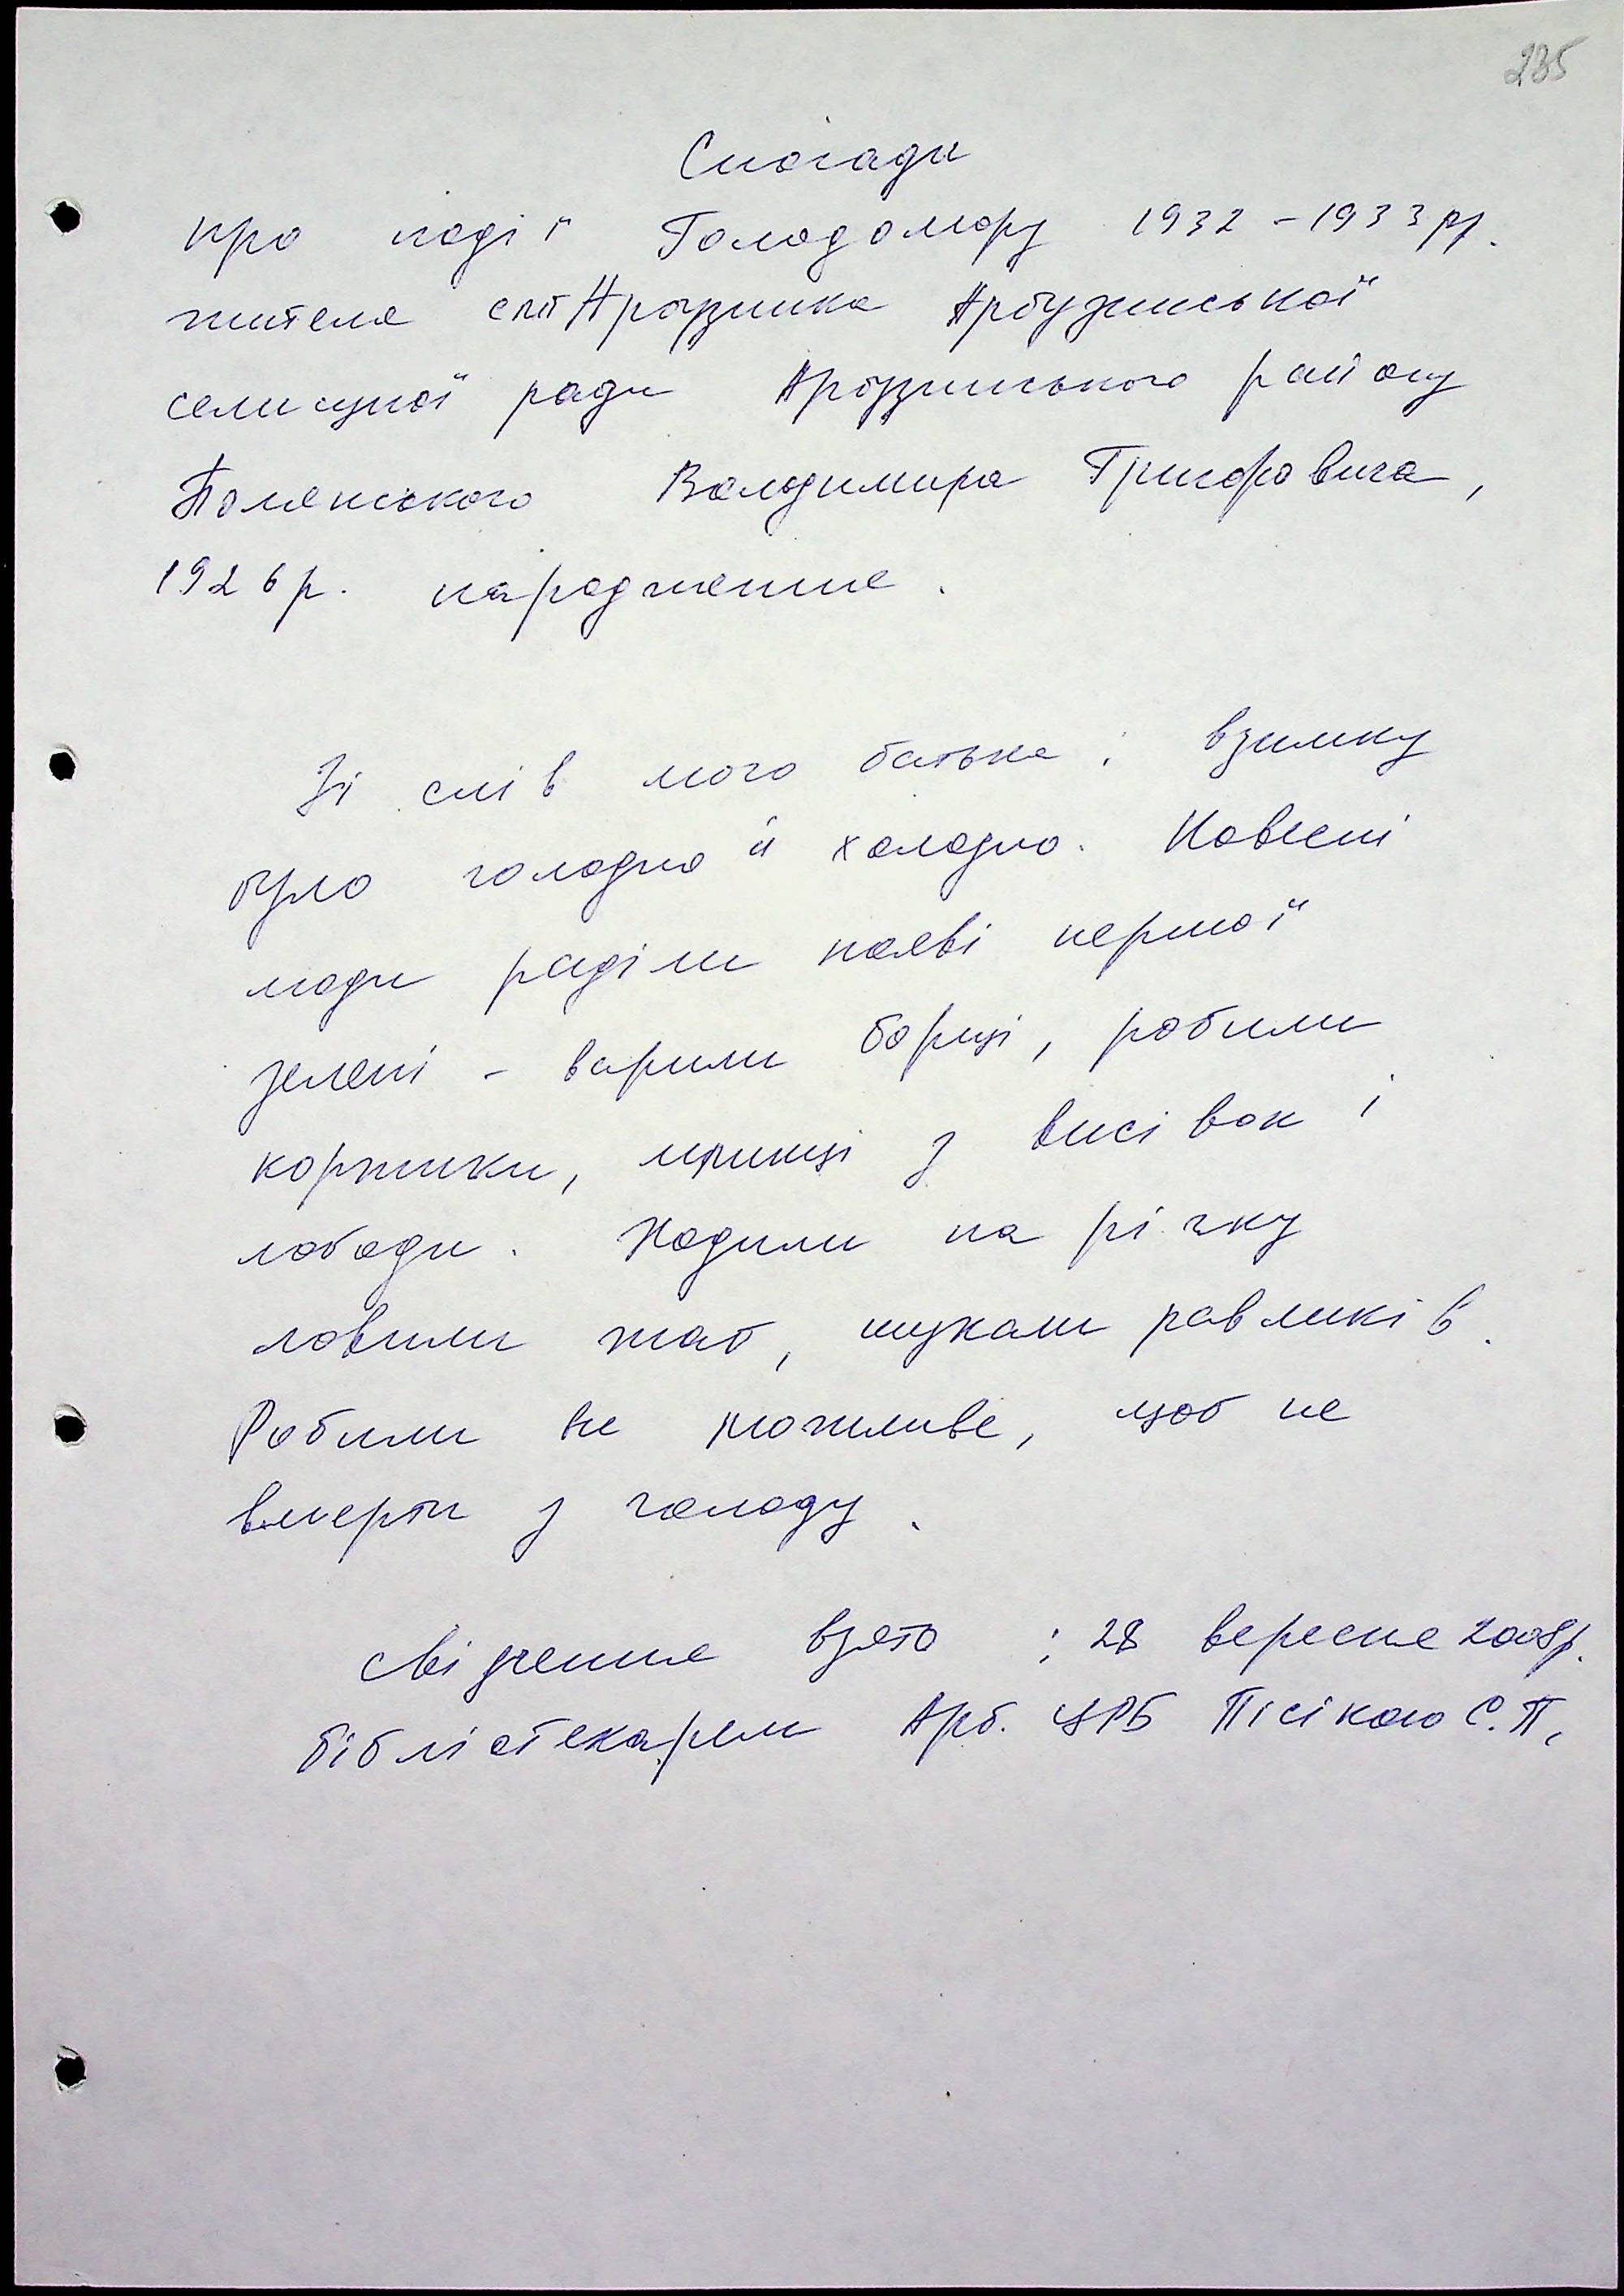 235
Спогади
про події Голодомору 1932-1933 рр.
жителя смт Арбузинка Арбузинської
селищної ради Арбузинського району
Полянського Володимира Григоровича,
1926 р. народження.
Зі слів мого батька: взимку
було голодно й холодно. Навесні
люди раділи появі першої
зелені - варили борщі, робили
коржики, млинці з висівок і
лободи. Ходили на річку
ловили жаб, шукали равликів.
Робили все можливе, щоб не
вмерти з голоду.
Свідчення взято: 28 вересня 2008р.
бібліотекарем Арб. ЦРБ Пісікою С.П.